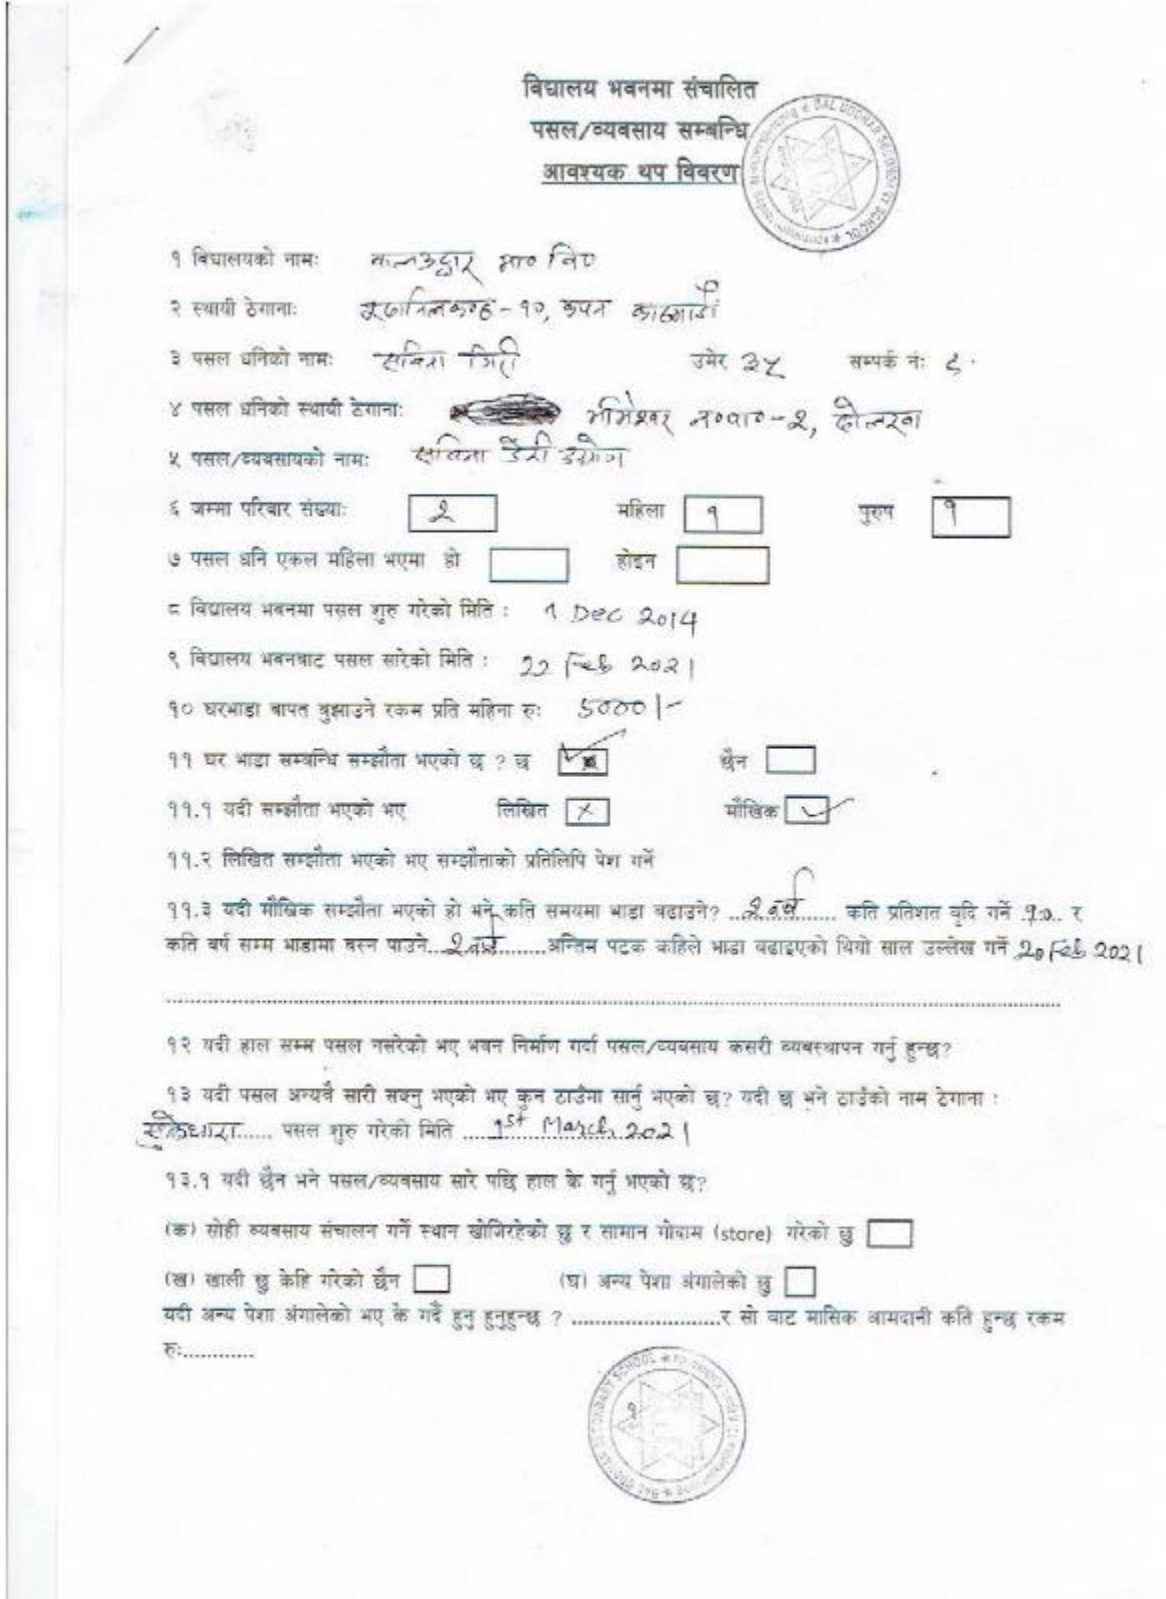 विद्यालय भवनमा संचालित
पसल/व्यवसाय सम्बन्धि
आवश्यक थप विवरण
BAL UDDHAR SECONDARY SCHOOL
१ विद्यालयको नाम: बालउद्धार मा० वि०
२ स्थायी ठेगाना: बुढानिलकण्ठ-१०, कपन काठमाडौं
३ पसल धनिको नाम: सबिता गिरी उमेर ३५ सम्पर्क नं: ९
४ पसल धनिको स्थायी ठेगाना: भीमेश्वर न०पा०-२, दोलखा
५ पसल/व्यवसायको नाम: सबिता डेरी उद्योग
६ जम्मा परिवार संख्या: २ महिला १ पुरुष १
७ पसल धनि एकल महिला भएमा हो होइन
८ विद्यालय भवनमा पसल शुरु गरेको मिति : १ Dec 2014
९ विद्यालय भवनबाट पसल सारेको मिति : 22 Feb 2021
१० घरभाडा बापत बुझाउने रकम प्रति महिना रु: 5000/-
११ घर भाडा सम्बन्धि सम्झौता भएको छ ? छ छैन
११.१ यदी सम्झौता भएको भए लिखित मौखिक
११.२ लिखित सम्झौता भएको भए सम्झौताको प्रतिलिपि पेश गर्ने
११.३ यदी मौखिक सम्झौता भएको हो भने कति समयमा भाडा बढाउने? ..२ वर्ष.......... कति प्रतिशत वृदि गर्ने .१०.. र
कति बर्ष सम्म भाडामा बस्न पाउने...२ वर्ष..........अन्तिम पटक कहिले भाडा बढाइएको थियो साल उल्लेख गर्ने 20 Feb 2021
१२ यदी हाल सम्म पसल नसरेको भए भवन निर्माण गर्दा पसल/व्यवसाय कसरी व्यबस्थापन गर्नु हुन्छ?
१३ यदी पसल अन्यत्रै सारी सक्नु भएको भए कुन ठाउँमा सार्नु भएको छ? यदी छ भने ठाउँको नाम ठेगाना :
...... पसल शुरु गरेको मिति .....1st March 2021
१३.१ यदी छैन भने पसल/व्यवसाय सारे पछि हाल के गर्नु भएको छ?
(क) सोही व्यवसाय संचालन गर्ने स्थान खोजिरहेको छु र सामान गोदाम (store) गरेको छु
(ख) खाली छु केहि गरेको छैन (घ) अन्य पेशा अंगालेको छु
यदी अन्य पेशा अंगालेको भए के गर्दै हुनु हुनुहुन्छ ? ..........................र सो बाट मासिक आमदानी कति हुन्छ रकम
रु:.............
१